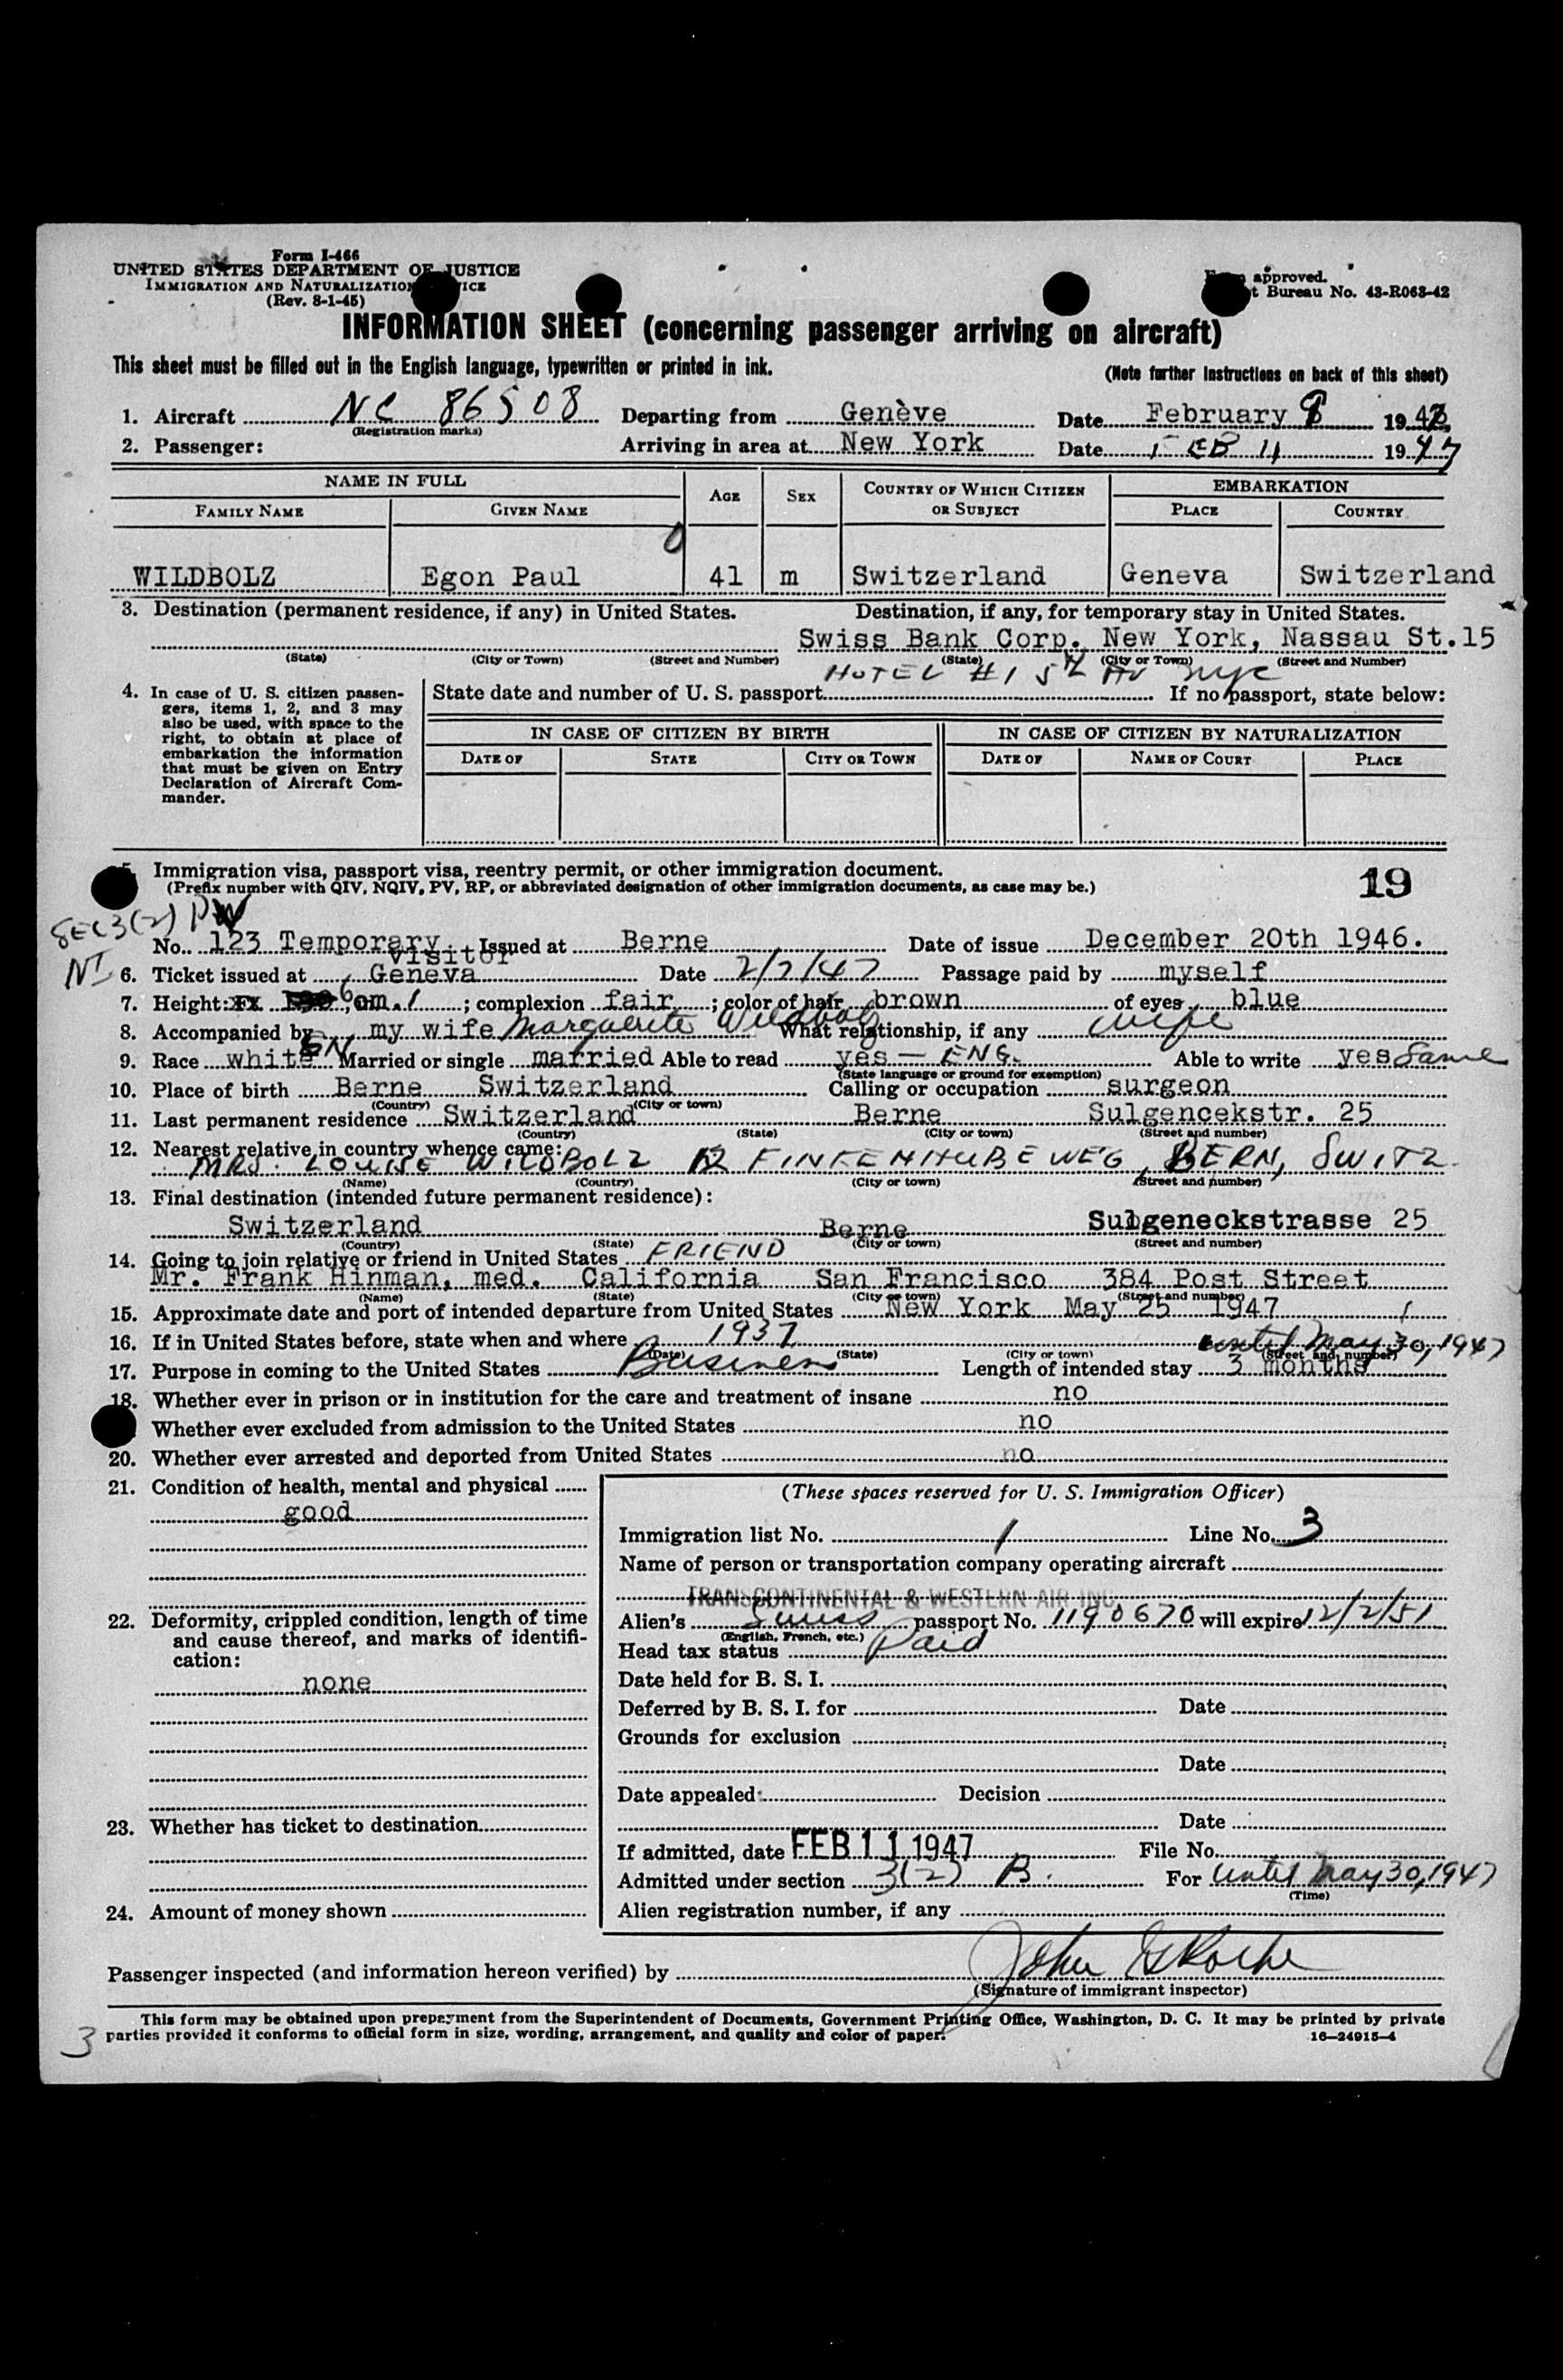 Form I-466
UNITED STATES DEPARTMENT OF JUSTICE
IMMIGRATION AND NATURALIZATION
(Rev. 8-1-45)
approved.
Bureau No. 43-R063-42
INFORMATION SHEET (concerning passenger arriving on aircraft)
This sheet must be filled out in the English language, typewritten or printed in ink.
(Note further instructions on back of this sheet)
1. Aircraft NC 86508 Departing from Genève Date February 1947
(Registration marks)
2. Passenger: Arriving in area at New York Date FEB 11 1947
NAME IN FULL AGE SEX COUNTRY OF WHICH CITIZEN OR SUBJECT EMBARKATION
FAMILY NAME GIVEN NAME PLACE COUNTRY
0
WILDBOLZ Egon Paul 41 m Switzerland Geneva Switzerland
3. Destination (permanent residence, if any) in United States. Destination, if any, for temporary stay in United States.
Swiss Bank Corp. New York, Nassau St.15
(State) (City or Town) (Street and Number) (State) (City or Town) (Street and Number)
HOTEL #1 5th AV NYC
4. In case of U. S. citizen passengers, items 1, 2, and 3 may also be used, with space to the right, to obtain at place of embarkation the information that must be given on Entry Declaration of Aircraft Commander.
State date and number of U. S. passport If no passport, state below:
IN CASE OF CITIZEN BY BIRTH IN CASE OF CITIZEN BY NATURALIZATION
DATE OF STATE CITY OR TOWN DATE OF NAME OF COURT PLACE
Immigration visa, passport visa, reentry permit, or other immigration document.
(Prefix number with QIV, NQIV, PV, RP, or abbreviated designation of other immigration documents, as case may be.)
19
SEC 3(2) PV
No. 123 Temporary visitor Issued at Berne Date of issue December 20th 1946.
NI
6. Ticket issued at Geneva Date 2/7/47 Passage paid by myself
7. Height: 6 1 ; complexion fair ; color of hair brown of eyes blue
8. Accompanied by my wife Marguerite Wildbolz What relationship, if any wife
9. Race white Married or single married Able to read yes — ENG. Able to write yes Same
(State language or ground for exemption)
10. Place of birth Berne Switzerland Calling or occupation surgeon
(Country) (City or town)
11. Last permanent residence Switzerland Berne Sulgencekstr. 25
(Country) (State) (City or town) (Street and number)
12. Nearest relative in country whence came:
MRS. LOUISE WILDBOLZ 12 FINKENHUBEWEG, BERN, SWITZ.
(Name) (Country) (City or town) (Street and number)
13. Final destination (intended future permanent residence):
Switzerland Berne Sulgeneckstrasse 25
(Country) (State) (City or town) (Street and number)
14. Going to join relative or friend in United States FRIEND
Mr. Frank Hinman, med. California San Francisco 384 Post Street
(Name) (State) (City or town) (Street and number)
15. Approximate date and port of intended departure from United States New York May 25 1947
16. If in United States before, state when and where 1937 until May 30, 1947
(Date) (State) (City or town) (Street and number)
17. Purpose in coming to the United States Business Length of intended stay 3 months
18. Whether ever in prison or in institution for the care and treatment of insane no
Whether ever excluded from admission to the United States no
20. Whether ever arrested and deported from United States no
21. Condition of health, mental and physical
good
22. Deformity, crippled condition, length of time and cause thereof, and marks of identification:
none
23. Whether has ticket to destination
24. Amount of money shown
(These spaces reserved for U. S. Immigration Officer)
Immigration list No. 1 Line No. 3
Name of person or transportation company operating aircraft
TRANSCONTINENTAL & WESTERN AIR INC.
Alien's Swiss passport No. 1190670 will expire 12/2/51
(English, French, etc.)
Head tax status Paid
Date held for B. S. I.
Deferred by B. S. I. for Date
Grounds for exclusion
Date
Date appealed Decision
Date
If admitted, date FEB 11 1947 File No.
Admitted under section 3(2) B. For until May 30, 1947
(Time)
Alien registration number, if any
Passenger inspected (and information hereon verified) by John
(Signature of immigrant inspector)
This form may be obtained upon prepayment from the Superintendent of Documents, Government Printing Office, Washington, D. C. It may be printed by private
parties provided it conforms to official form in size, wording, arrangement, and quality and color of paper.
16—24915-4
3